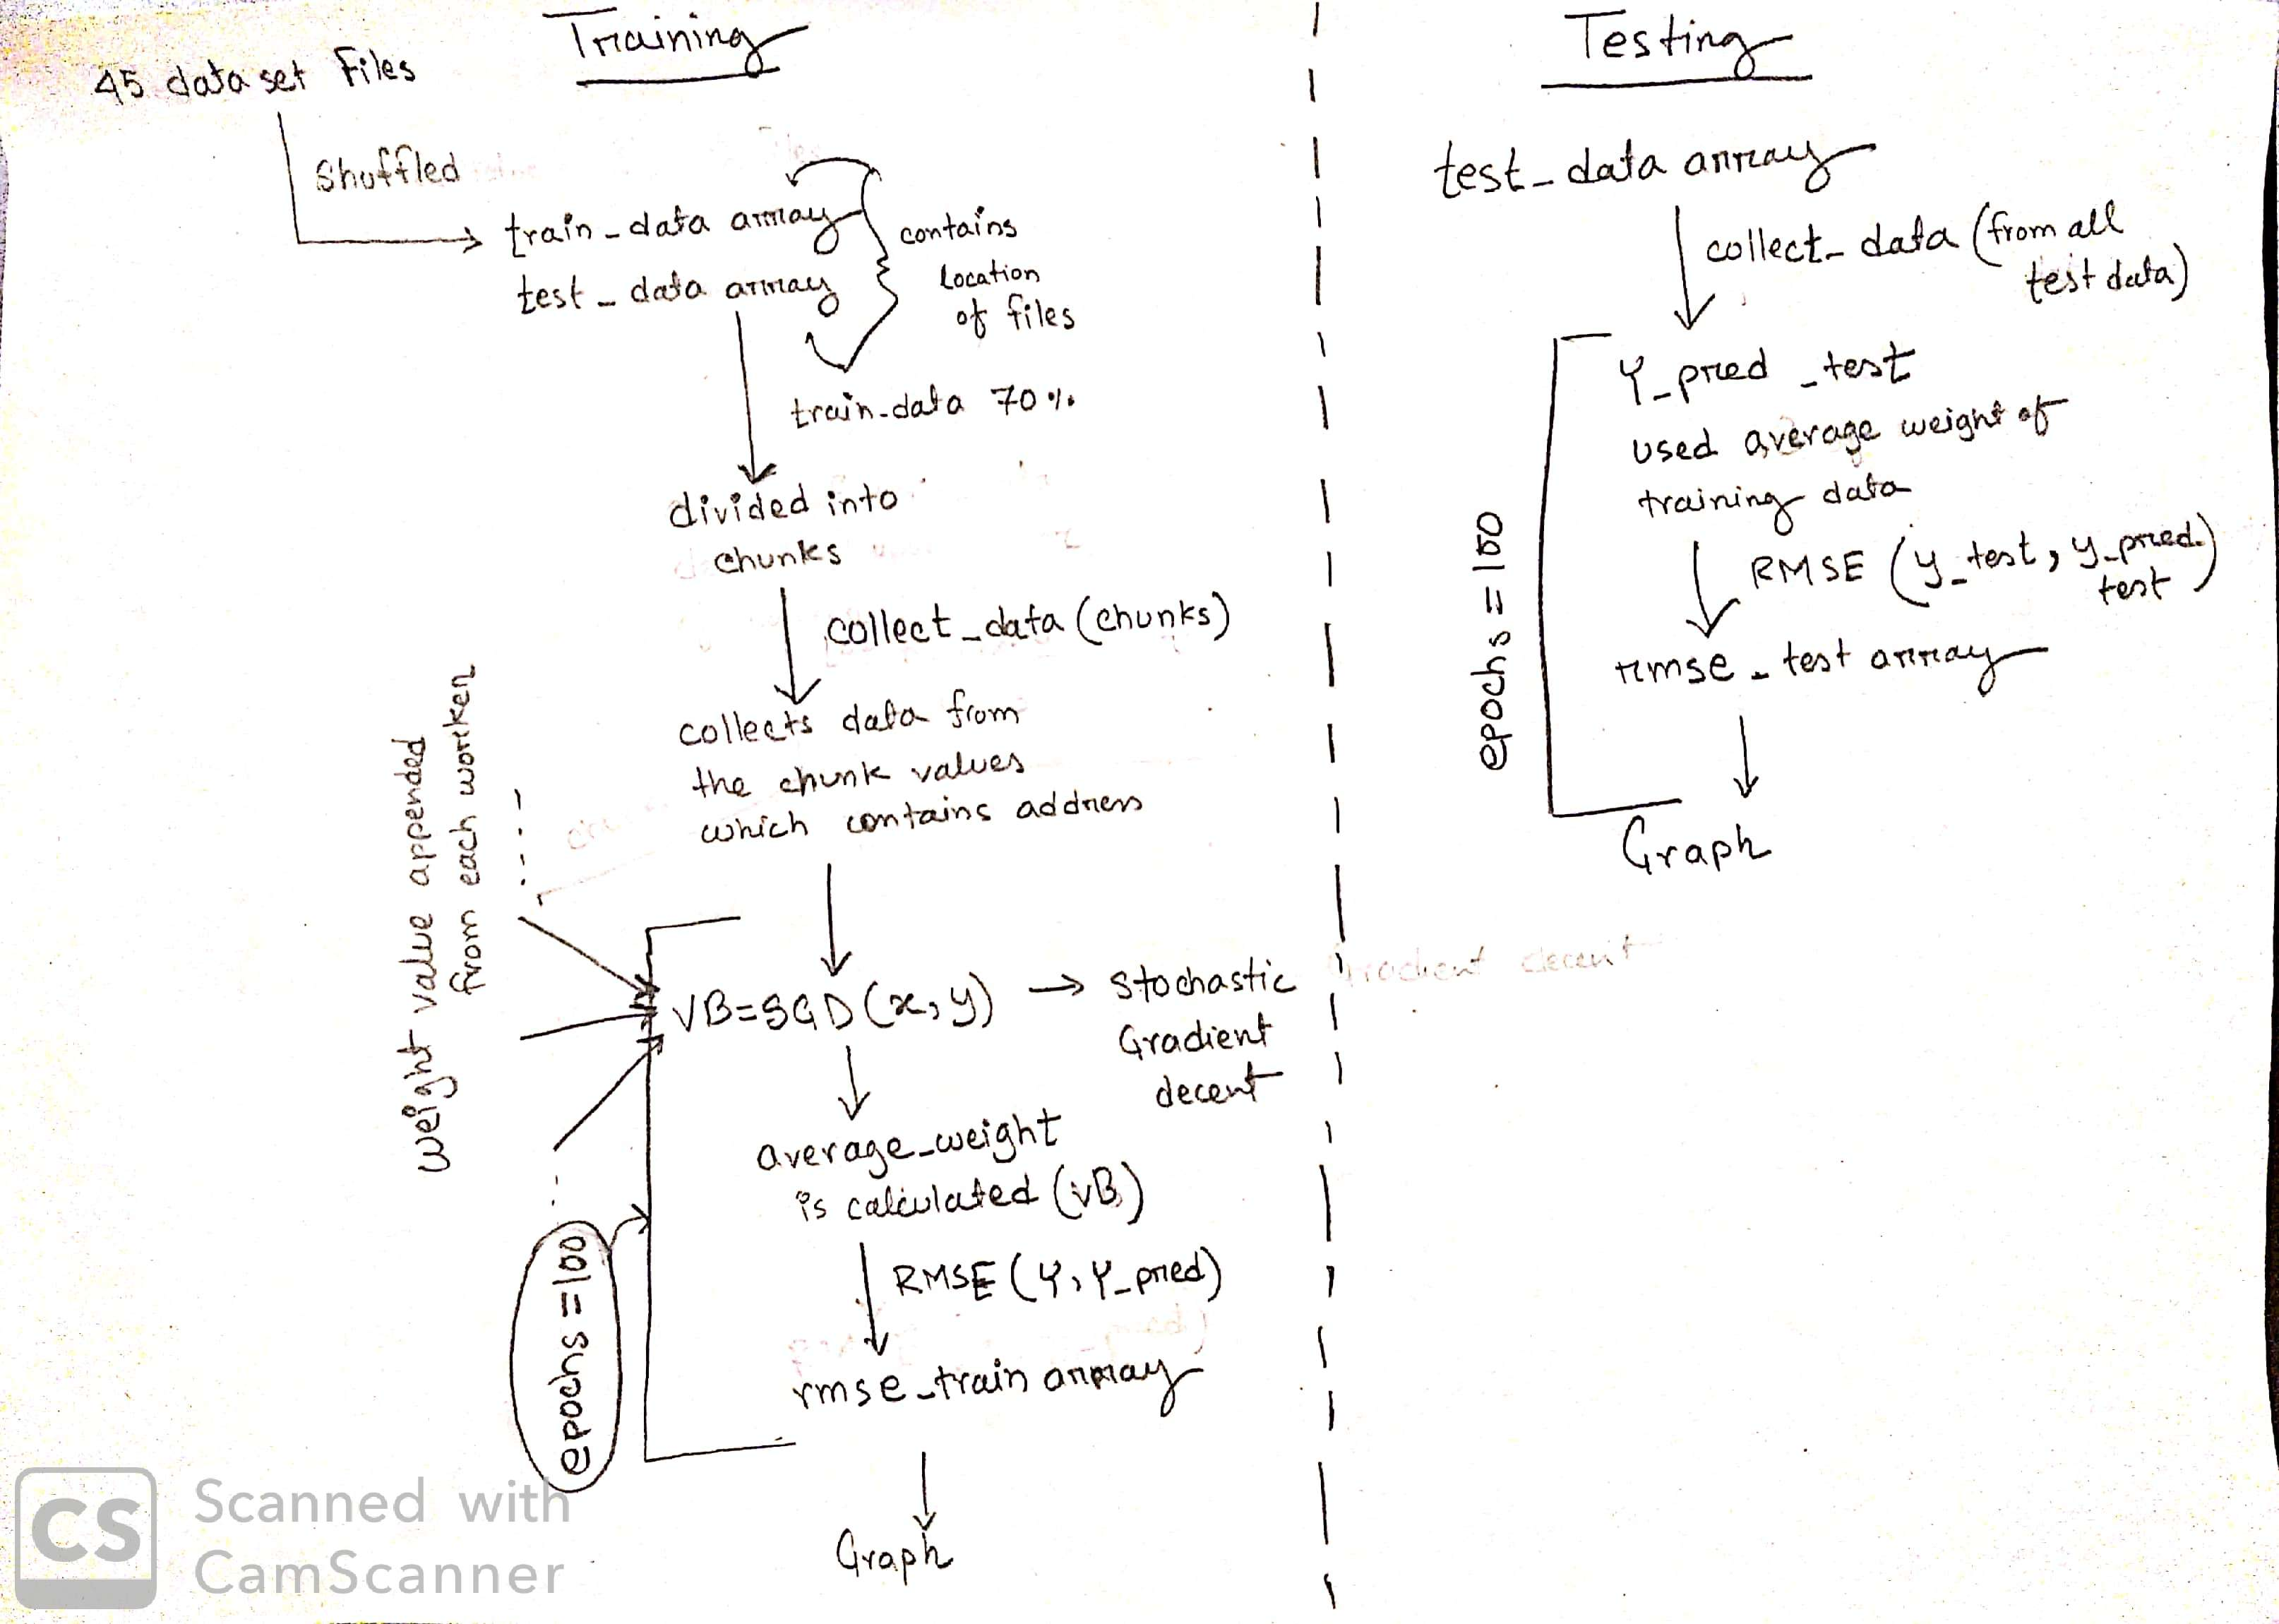 Training
45 data set Files
Shuffled
train_data array
test_data array
contains
location
of files
train-data 70%
divided into
chunks
collect_data (chunks)
collects data from
the chunk values
which contains address
weight value appended
from each worker
VB=SGD(x, y) → Stochastic
Gradient
decent
average_weight
is calculated (VB)
RMSE (Y, Y_pred)
rmse_train array
epochs = 100
Graph
Testing
test_data array
collect_data (from all
test data)
Y_pred_test
used average weight of
training data
RMSE (y_test, y_pred_
test)
rmse_test array
epochs = 100
Graph
CS
Scanned with
CamScanner